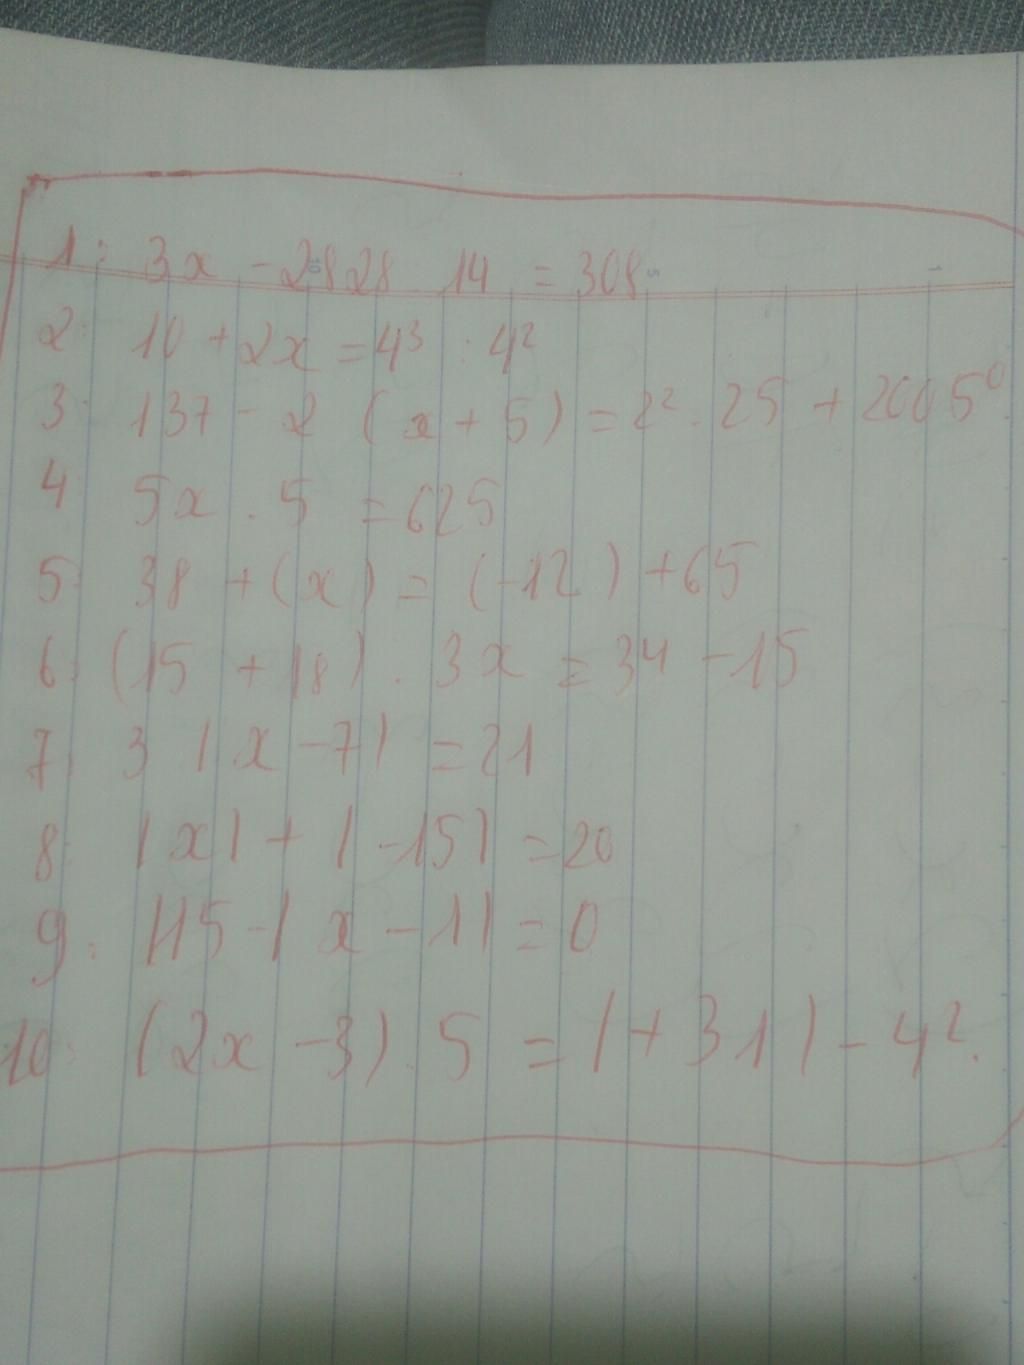 1: 3x - 2828 . 14 = 308
2: 10 + 2x = 4³ : 4²
3: 137 - 2 (x + 5) = 2² . 25 + 2005⁰
4 5x . 5 = 625
5: 38 + (x) = (-12) + 65
6: (15 + 18) . 3x = 34 - 15
7: 3 |x - 7| = 21
8: |x| + |-15| = 20
9: |15 - | x - 1| = 0
10: (2x - 3) . 5 = |+31| - 4².